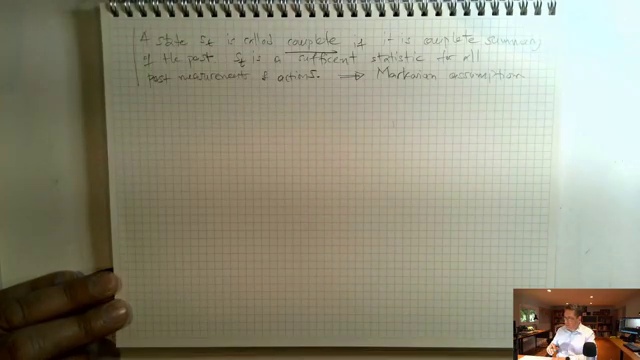 A state St is called complete if it is complete summary
of the past St is a sufficent statistic for all
past measurement & actions. ⟹ Markovian assumption